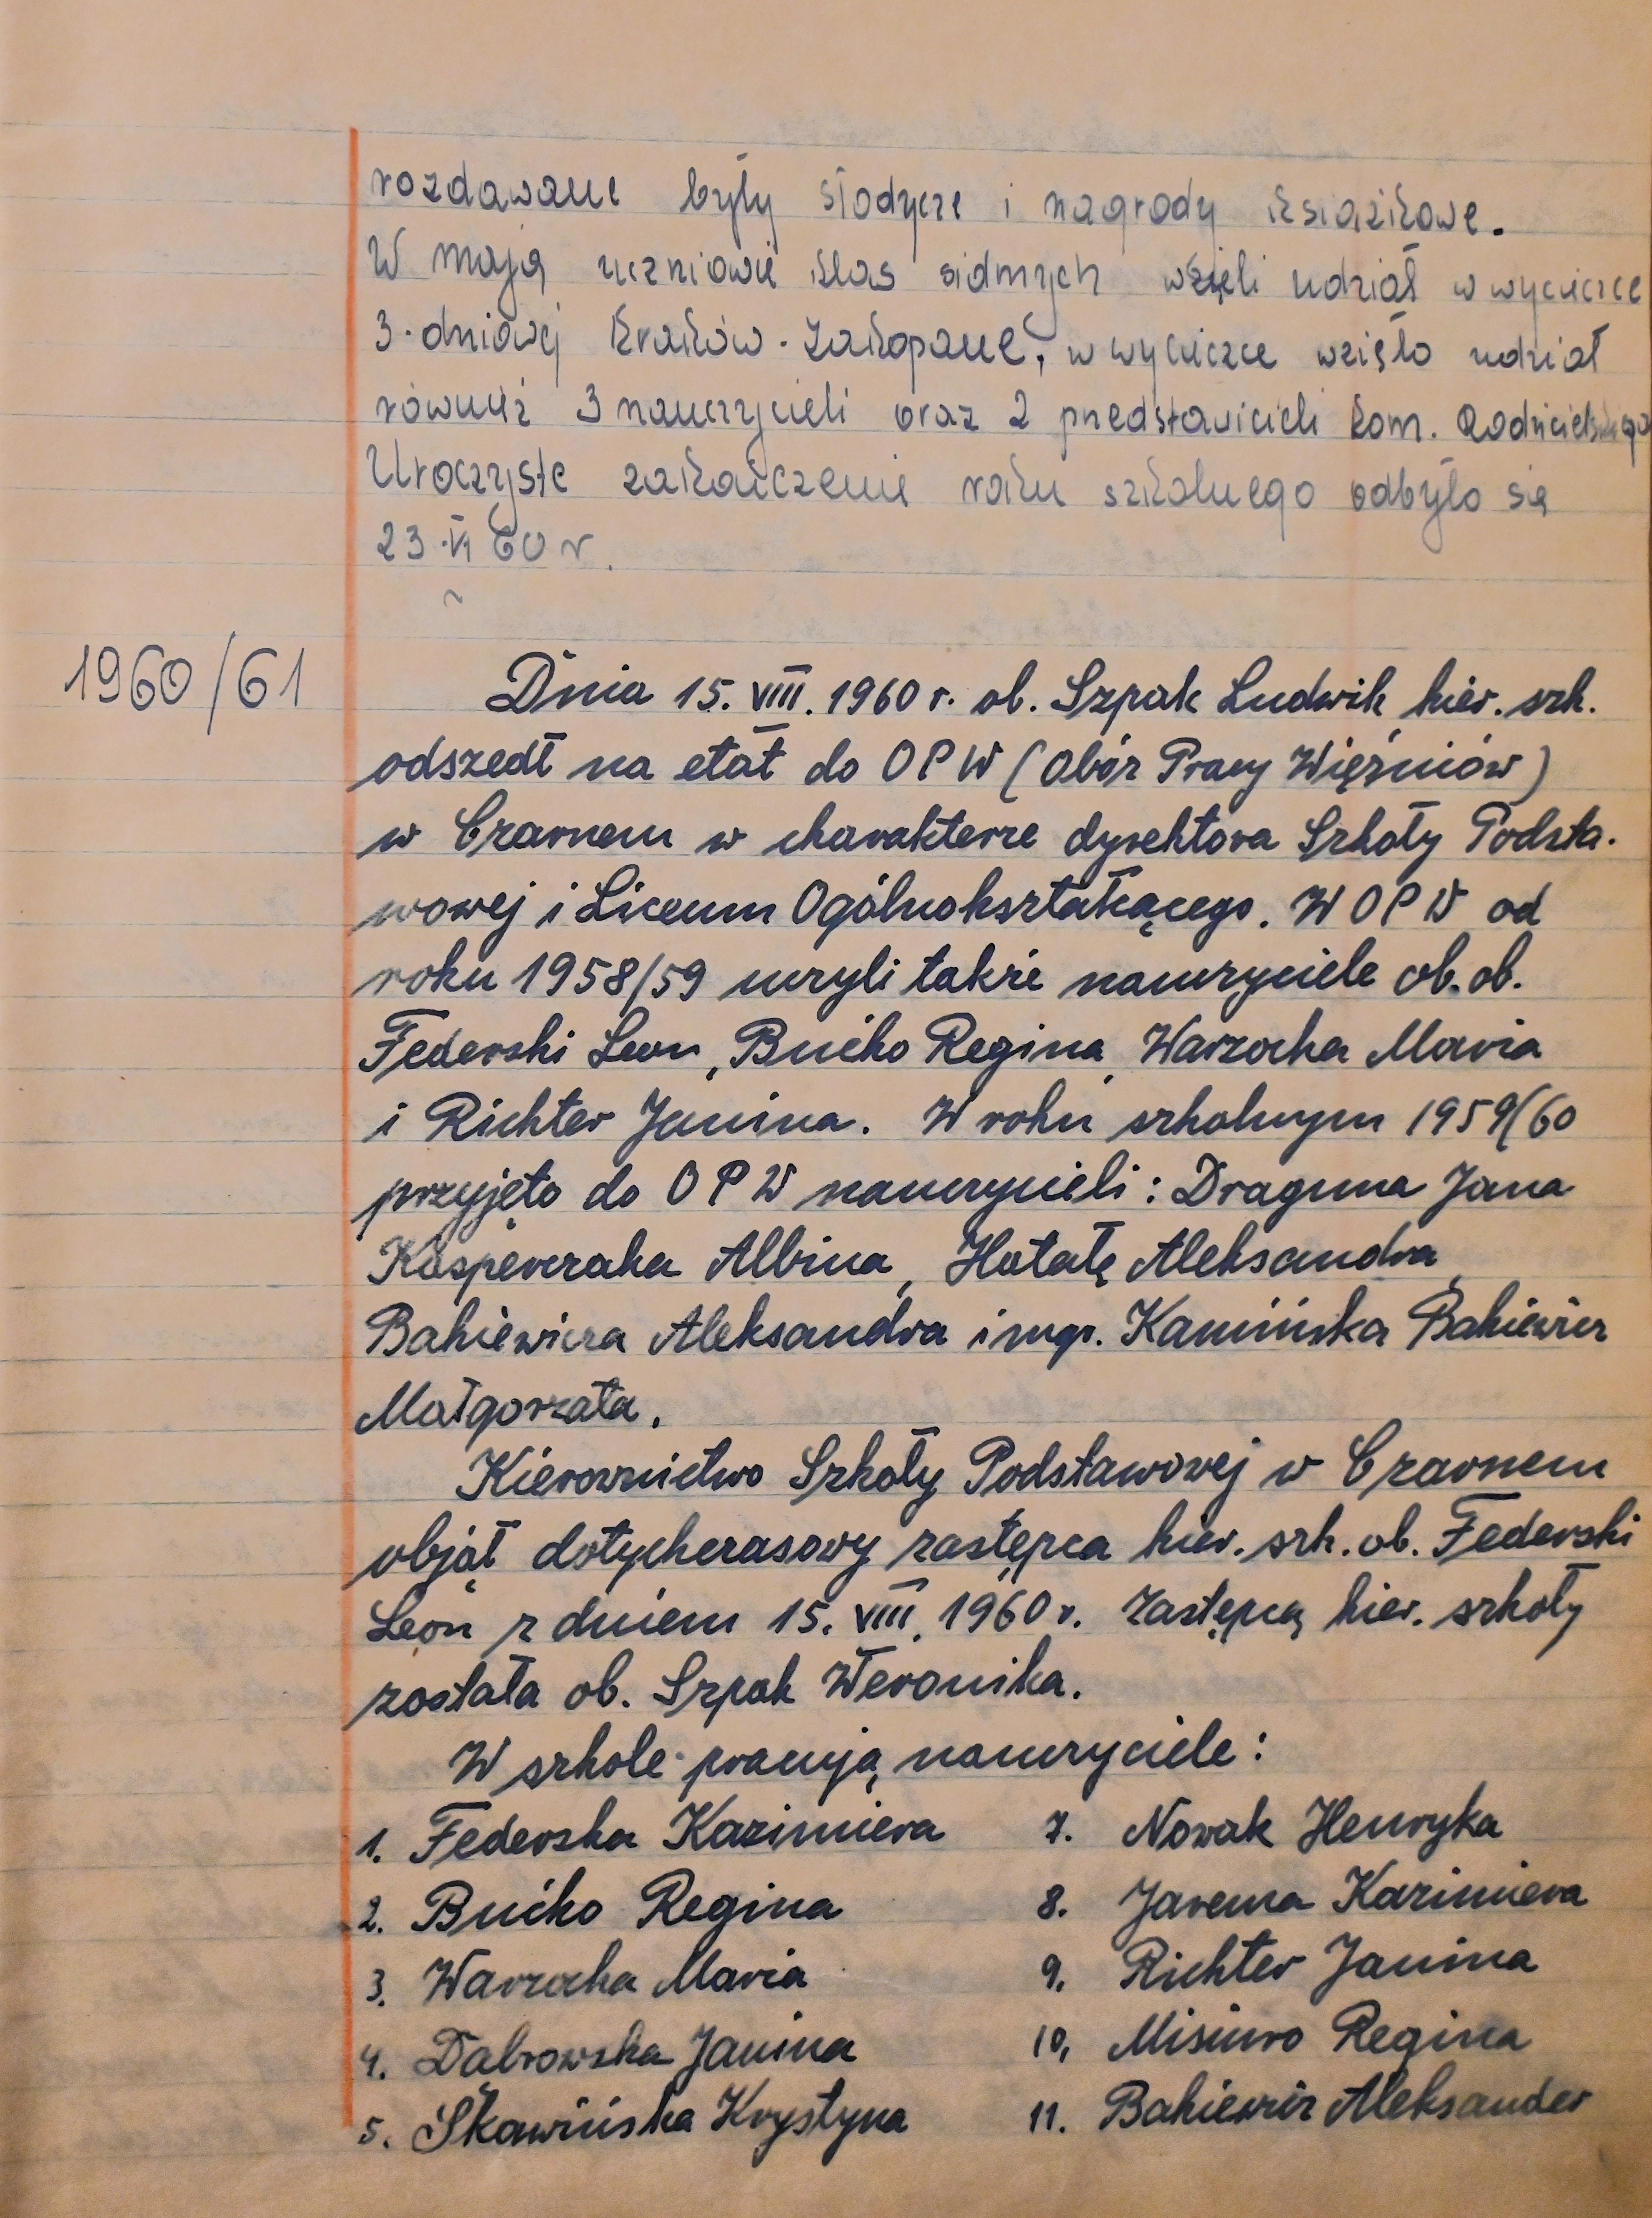 rozdawane były słodycze i nagrody książkowe.
W mają uczniowie klas siódmych wzięli udział w wycieczce
3-dniowej Kraków-Zakopane, w wycieczce wzięło udział
również 3 nauczycieli oraz 2 przedstawicieli kom. Rodzicielskiego
Uroczyste zakończenie roku szkolnego odbyło się
23.VI 60 r.
1960/61
Dnia 15. VIII. 1960 r. ob. Szpak Ludwik kier. szk.
odszedł na etat do OPW (Obóz Pracy Więźniów)
w Czarnem w charakterze dyrektora Szkoły Podsta-
wowej i Liceum Ogólnokształcącego. W OPW od
roku 1958/59 uczyli także nauczyciele ob. ob.
Federski Leon, Bućko Regina, Warzocha Maria
i Richter Janina. W roku szkolnym 1959/60
przyjęto do OPW nauczycieli: Draguna Jana
Kasperczaka Albina, Hałałę Aleksandra,
Bakiewicza Aleksandra i mgr. Kamińska Bakiewicz
Małgorzata.
Kierownictwo Szkoły Podstawowej w Czarnem
objął dotychczasowy zastępca kier. szk. ob. Federski
Leon z dniem 15. VIII. 1960 r. Zastępcą kier. szkoły
została ob. Szpak Weronika.
W szkole pracują nauczyciele:
1. Federska Kazimiera 7. Nowak Henryka
2. Bućko Regina 8. Jarema Kazimiera
3. Warzocha Maria 9. Richter Janina
4. Dąbrowska Janina 10. Misiuro Regina
5. Skawińska Krystyna 11. Bakiewicz Aleksander